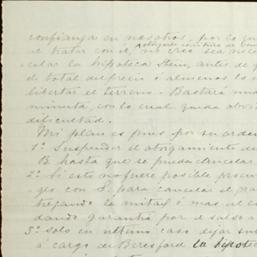 confianza en nosotros, por lo que
al tratar con el, no creo sea nece
celar la hipoteca Stein, antes de
el total del precio ó al menos la
libertar el terreno. Bastará una
minuta, con lo cual queda
dificultad.
Mi plan es pues por su orden
1º Suspender el otorgamiento de
B hasta que se pueda cancelar
2º Si esto no fuere posible
con S. para cancelar
la mitad ó mas al
dando garantia por el saldo
3º solo en ultimo caso dejar
á cargo de Beresford la hipoteca